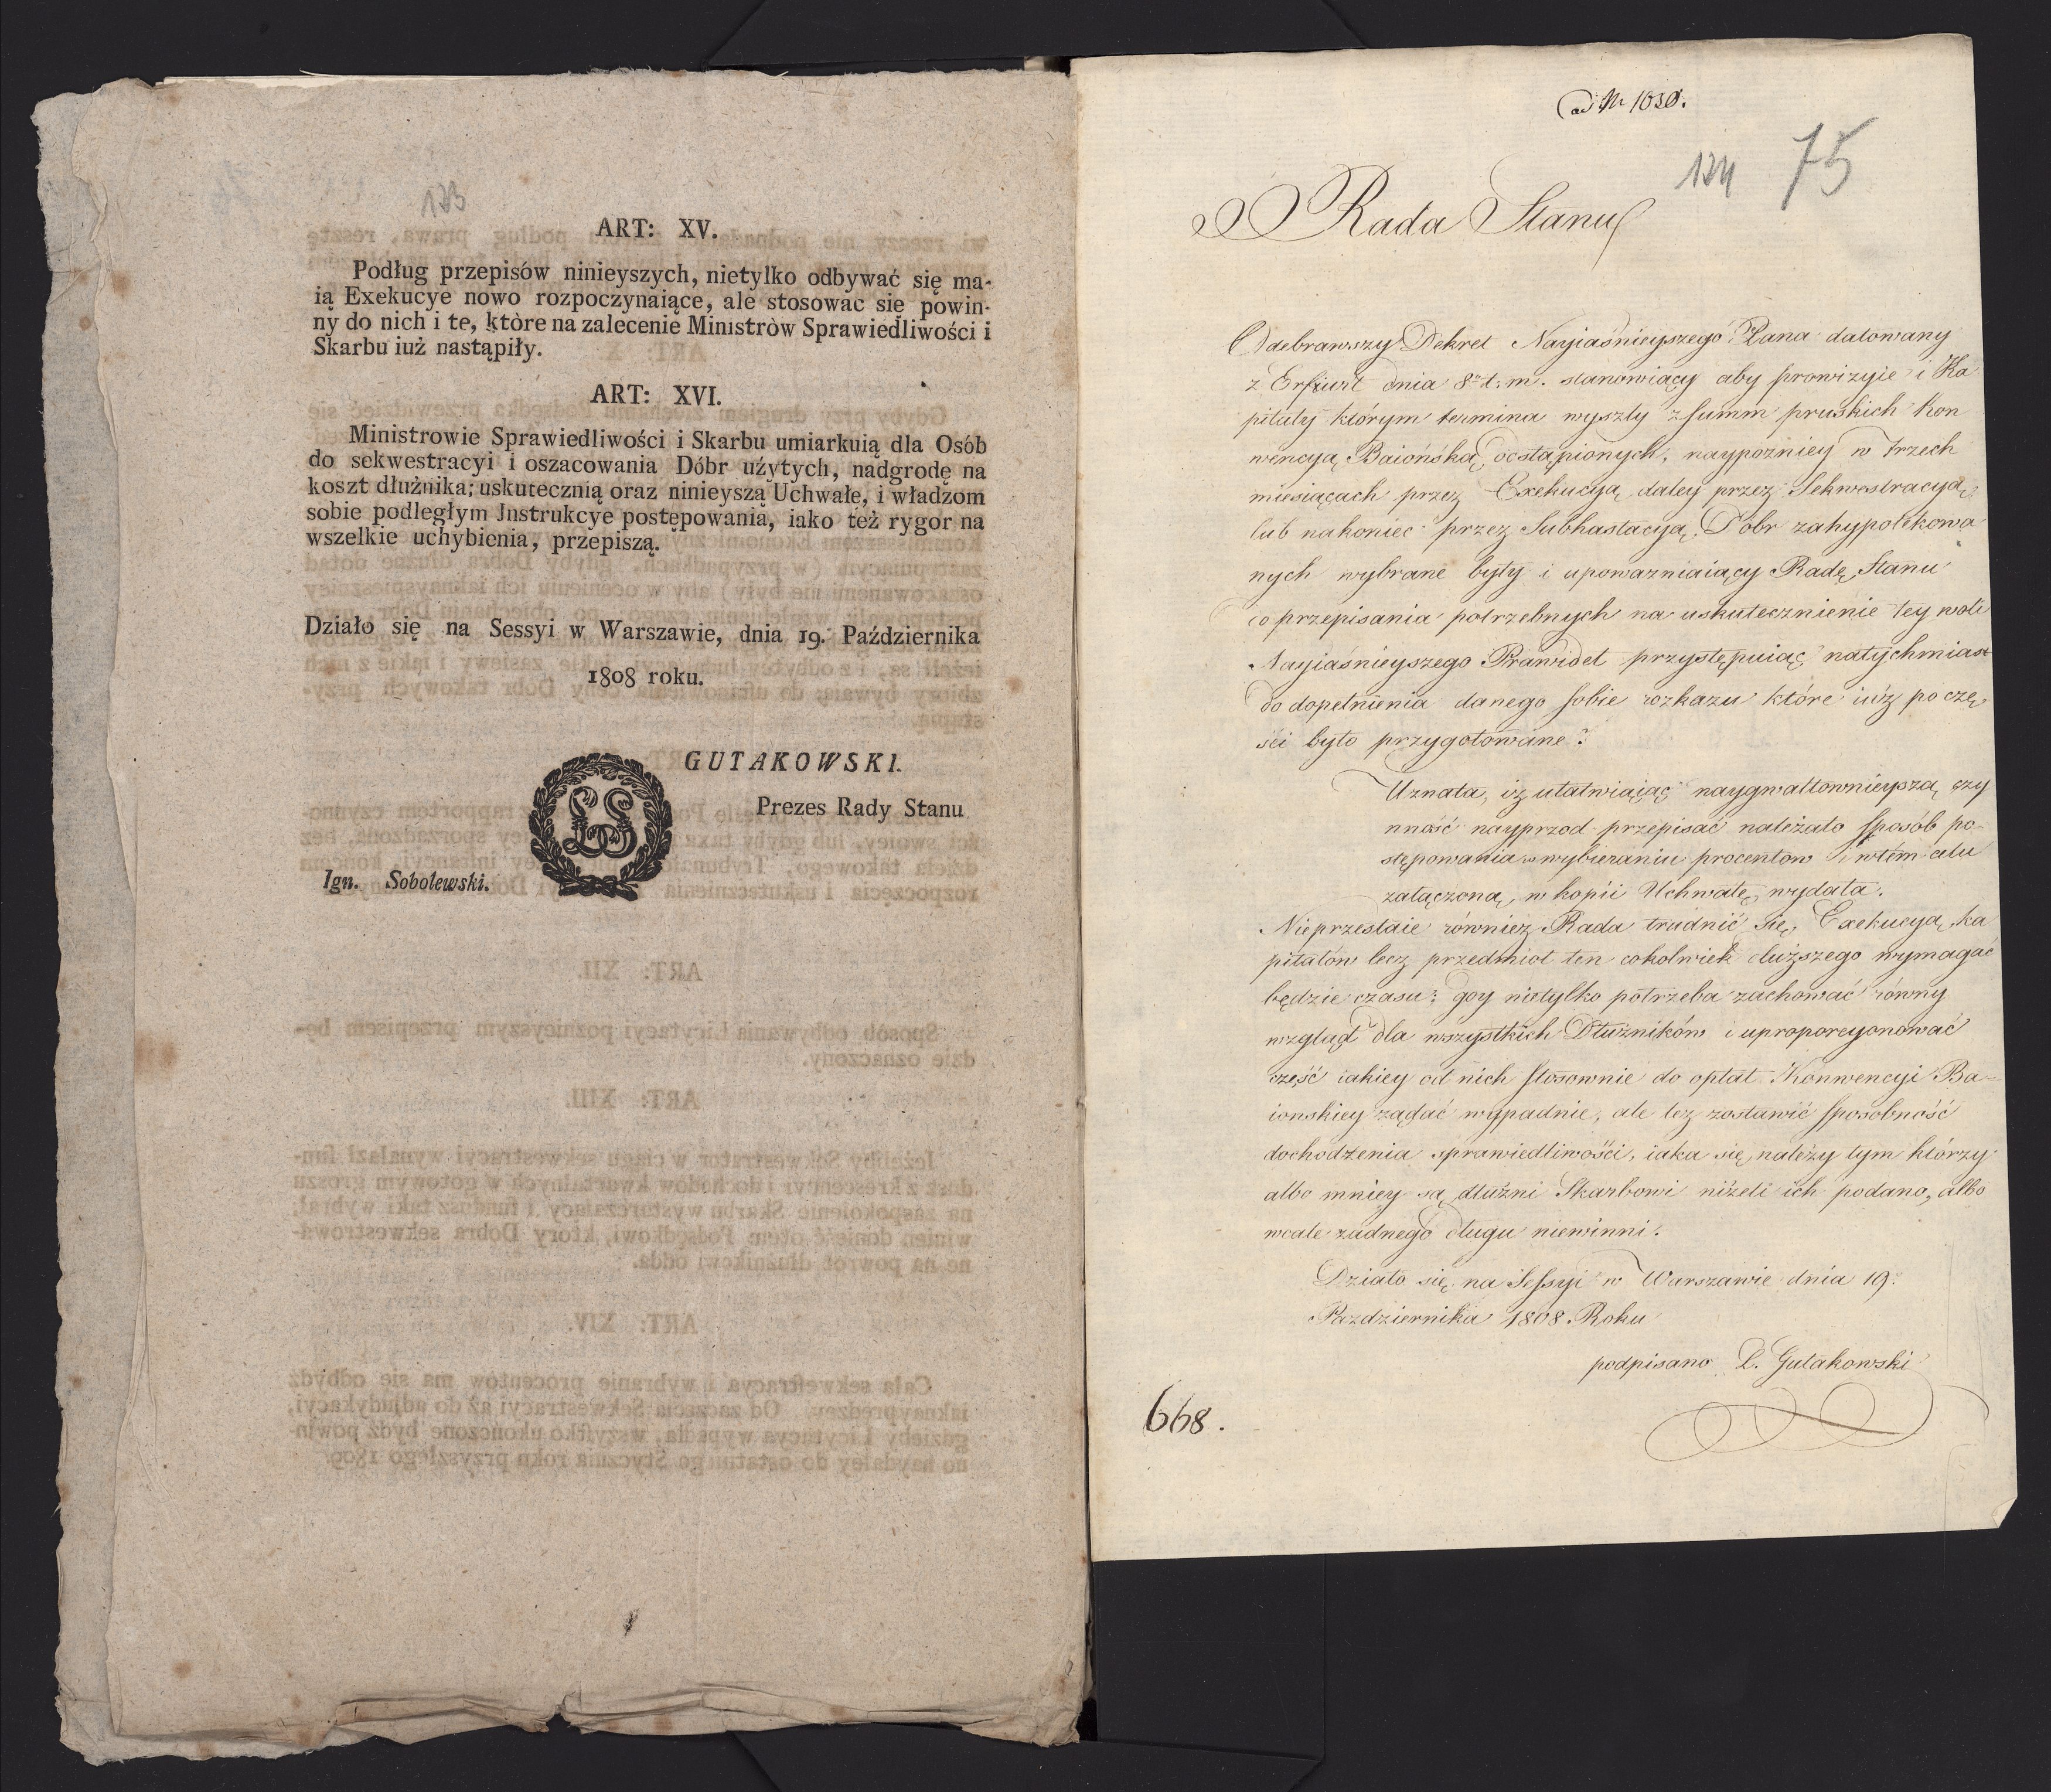 123
ART: XV.
Podług przepisów ninieyszych, nietylko odbywać się ma-
ią Exekucye nowo rozpoczynaiące, ale stosowac się powin-
ny do nich i te, ktòre na zalecenie Ministròw Sprawiedliwości i
Skarbu iuż nastąpiły.
ART: XVI.
Ministrowie Sprawiedliwości i Skarbu umiarkuią dla Osób
do sekwestracyi i oszacowania Dóbr użytych, nadgrodę na
koszt dłużnika; uskutecznią oraz ninieyszą Uchwałe, i władzom
sobie podległym Jnstrukcye postępowania, iako też rygor na
wszelkie uchybienia, przepiszą.
Działo się na Sessyi w Warszawie, dnia 19. Października
1808 roku.
GUTAKOWSKI.
Prezes Rady Stanu
LS
Ign. Sobolewski.
ad Nr 1030.
124 75
Rada Stanu
Odebrawszy Dekret Nayiaśnieyszego Pana datowany
z Erfurt dnia 8o t. m. stanowiący aby prowizyie i Ka
pitały którym termina wyszły z summ pruskich Kon
wencyą Baiońską odstąpionych, naypożniey w trzech
miesiącach przez Exekucyą daley przez Sekwestracyą
lub nakoniec przez Subhastacyą Dobr zahypotekowa
nych wybrane były i upoważniaiący Radę Stanu
do przepisania potrzebnych na uskutecznienie tey woli
Nayiaśnieyszego Prawideł przystępuiąc natychmiast
do dopełnienia danego sobie rozkazu które iuż po czę
ści było przygotowane:
Uznała, iż ułatwiaiąc naygwałtownieyszą czy
nność nayprzod przepisać należało sposób po-
stępowania w wybieraniu procentow i wtém celu
załączoną w kopii Uchwałę wydała.
Nieprzestaie również Rada trudnić się Exekucyą ka
pitałów lecz przedmiot ten cokolwiek dłuższego wymagać
będzie czasu: gdy nietylko potrzeba zachować równy
wzgląd dla wszystkich Dłużników i uproporcyonować
część iakiey od nich stosownie do opłat Konwencyi Ba-
ionskiey żądać wypadnie, ale też zostawić sposobność
dochodzenia sprawiedliwości, iaka się należy tym którzy
albo mniey są dłużni Skarbowi niżeli ich podano, albo
wcale żadnego długu niewinni.
Działo się na Sessyi w Warszawie dnia 19o
Pazdziernika 1808 Roku
podpisano L. Gutakowski
668.